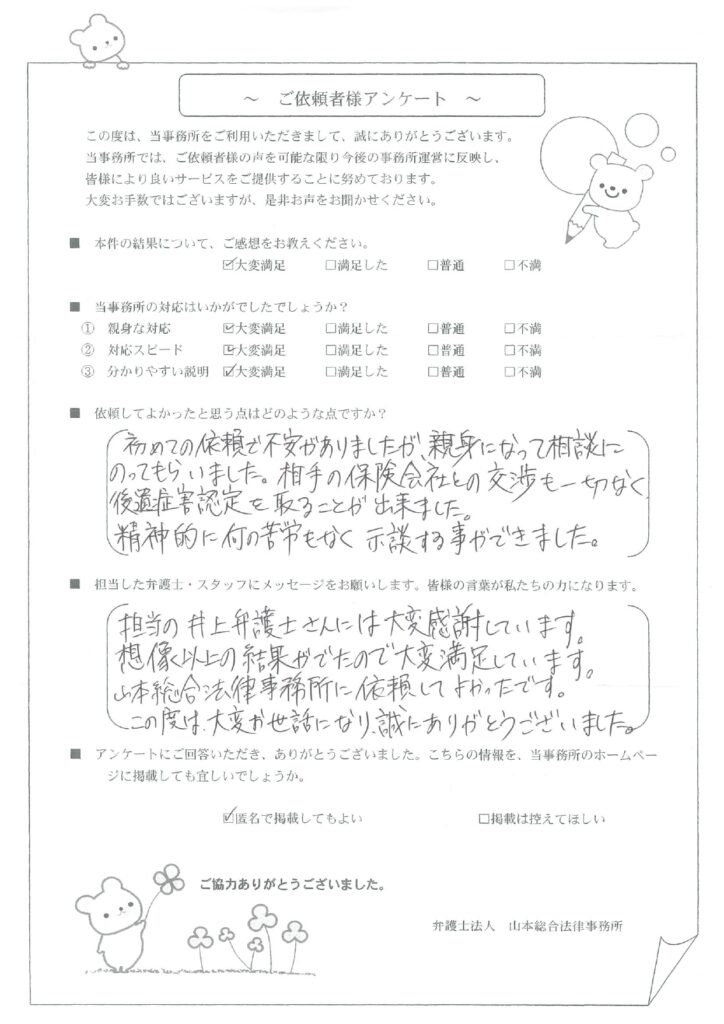 ～　ご依頼者様アンケート　～
この度は、当事務所をご利用いただきまして、誠にありがとうございます。
当事務所では、ご依頼者様の声を可能な限り今後の事務所運営に反映し、
皆様により良いサービスをご提供することに努めております。
大変お手数ではございますが、是非お声をお聞かせください。
■　本件の結果について、ご感想をお教えください。
☑大変満足　□満足した　□普通　□不満
■　当事務所の対応はいかがでしたでしょうか？
①　親身な対応　☑大変満足　□満足した　□普通　□不満
②　対応スピード　☑大変満足　□満足した　□普通　□不満
③　分かりやすい説明　☑大変満足　□満足した　□普通　□不満
■　依頼してよかったと思う点はどのような点ですか？
初めての依頼で不安がありましたが、親身になって相談に
のってもらいました。相手の保険会社との交渉も一切なく
後遺症害認定を取ることが出来ました。
精神的に何の苦労もなく示談する事ができました。
■　担当した弁護士・スタッフにメッセージをお願いします。皆様の言葉が私たちの力になります。
担当の井上弁護士さんには大変感謝しています。
想像以上の結果がでたので大変満足しています。
山本総合法律事務所に依頼してよかったです。
この度は、大変お世話になり、誠にありがとうございました。
■　アンケートにご回答いただき、ありがとうございました。こちらの情報を、当事務所のホームペー
ジに掲載しても宜しいでしょうか。
☑匿名で掲載してもよい　□掲載は控えてほしい
ご協力ありがとうございました。
弁護士法人　山本総合法律事務所